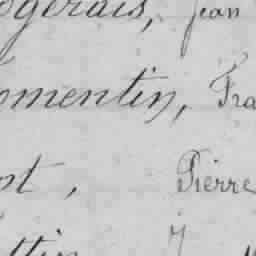 ogerais, Jean
omentin, Fra
nt, Pierre
ttin